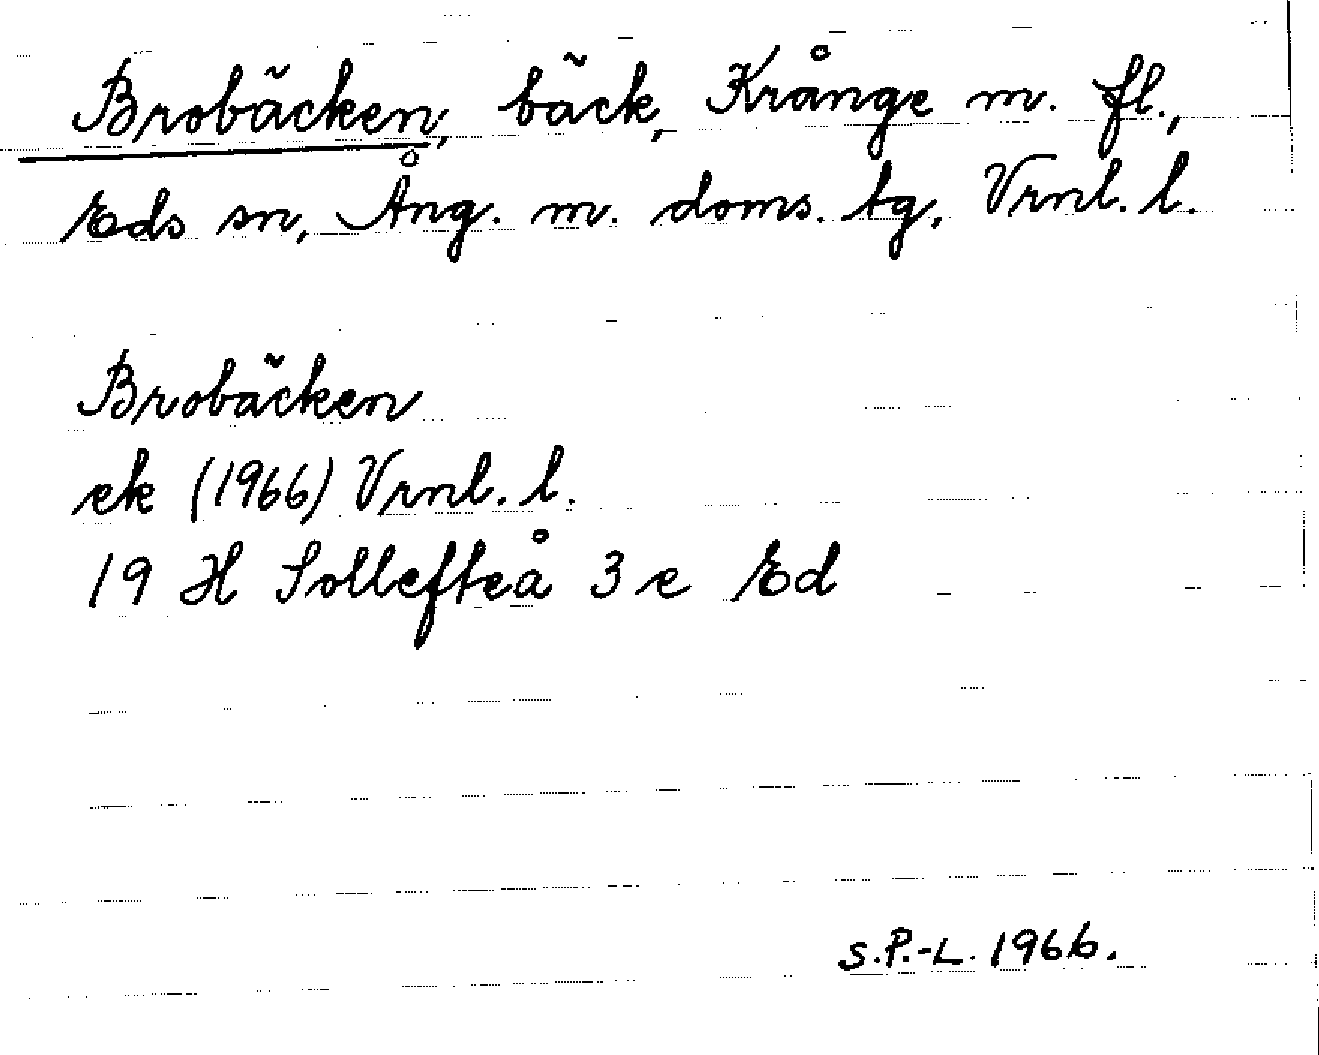 Brobäcken, bäck, Krånge m. fl.,
Eds sn, Ång. m. doms. tg, Vrnl. l.
Brobäcken
ek (1966) Vrnl. l.
19 H Sollefteå 3 e Ed
S.P.-L. 1966.